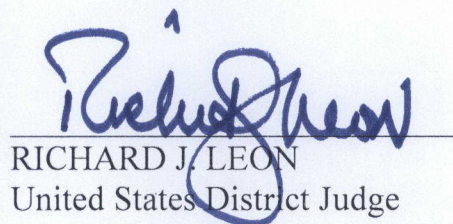 Richard J Leon
RICHARD J. LEON
United States District Judge